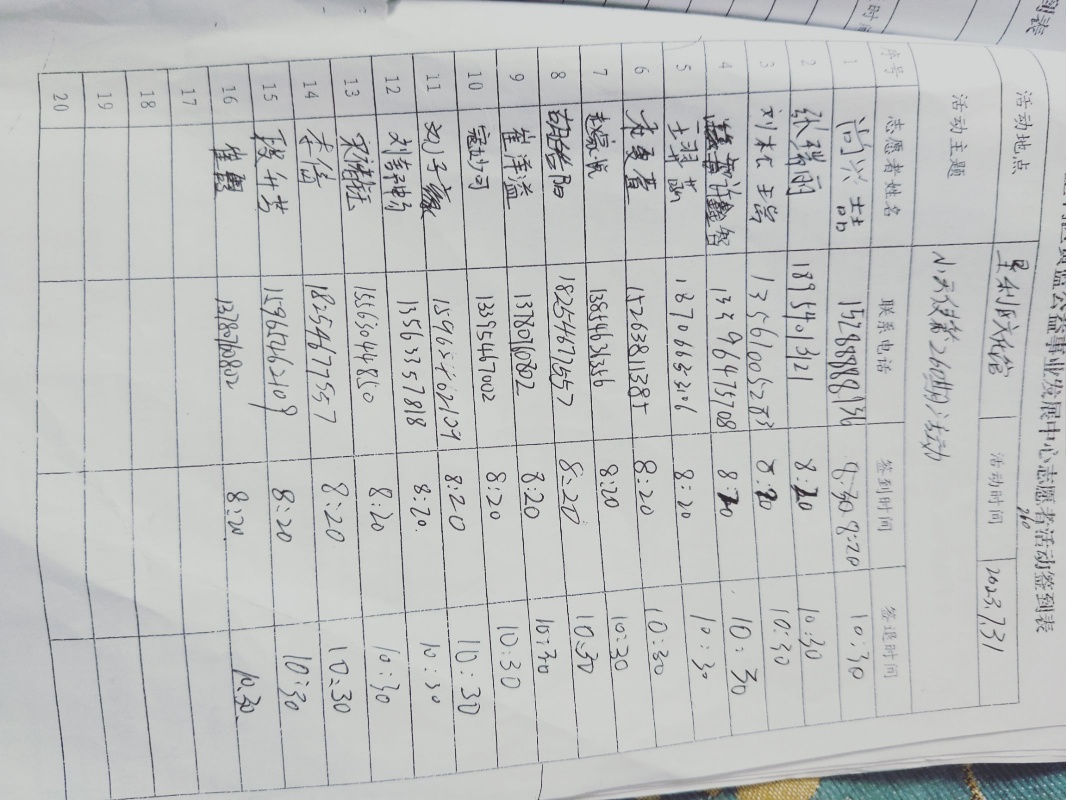 公益事业发展中心志愿者活动签到表
活动地点 垦利文化馆 活动时间 2023.7.31
活动主题 小天使第260期活动
序号 志愿者姓名 联系电话 签到时间 签退时间
1 尚兴喆 8:20 10:30
2 张瑞雨 18954013121 8:20 10:30
3 刘木 13561005283 8:20 10:30
4 许鑫铭 13396475708 8:20 10:30
5 王羽菡 18706663306 8:20 10:30
6 15263811385 8:20 10:30
7 13854631356 8:20 10:30
8 胡皓阳 18254671557 8:20 10:30
9 崔洋溢 13780760802 8:20 10:30
10 13395467002 8:20 10:30
11 刘子 15965262109 8:20 10:30
12 13563357818 8:20 10:30
13 15563044850 8:20 10:30
14 李信 18254677557 8:20 10:30
15 15967262109 8:20 10:30
16 崔 13780760802 8:20 10:30
17
18
19
20